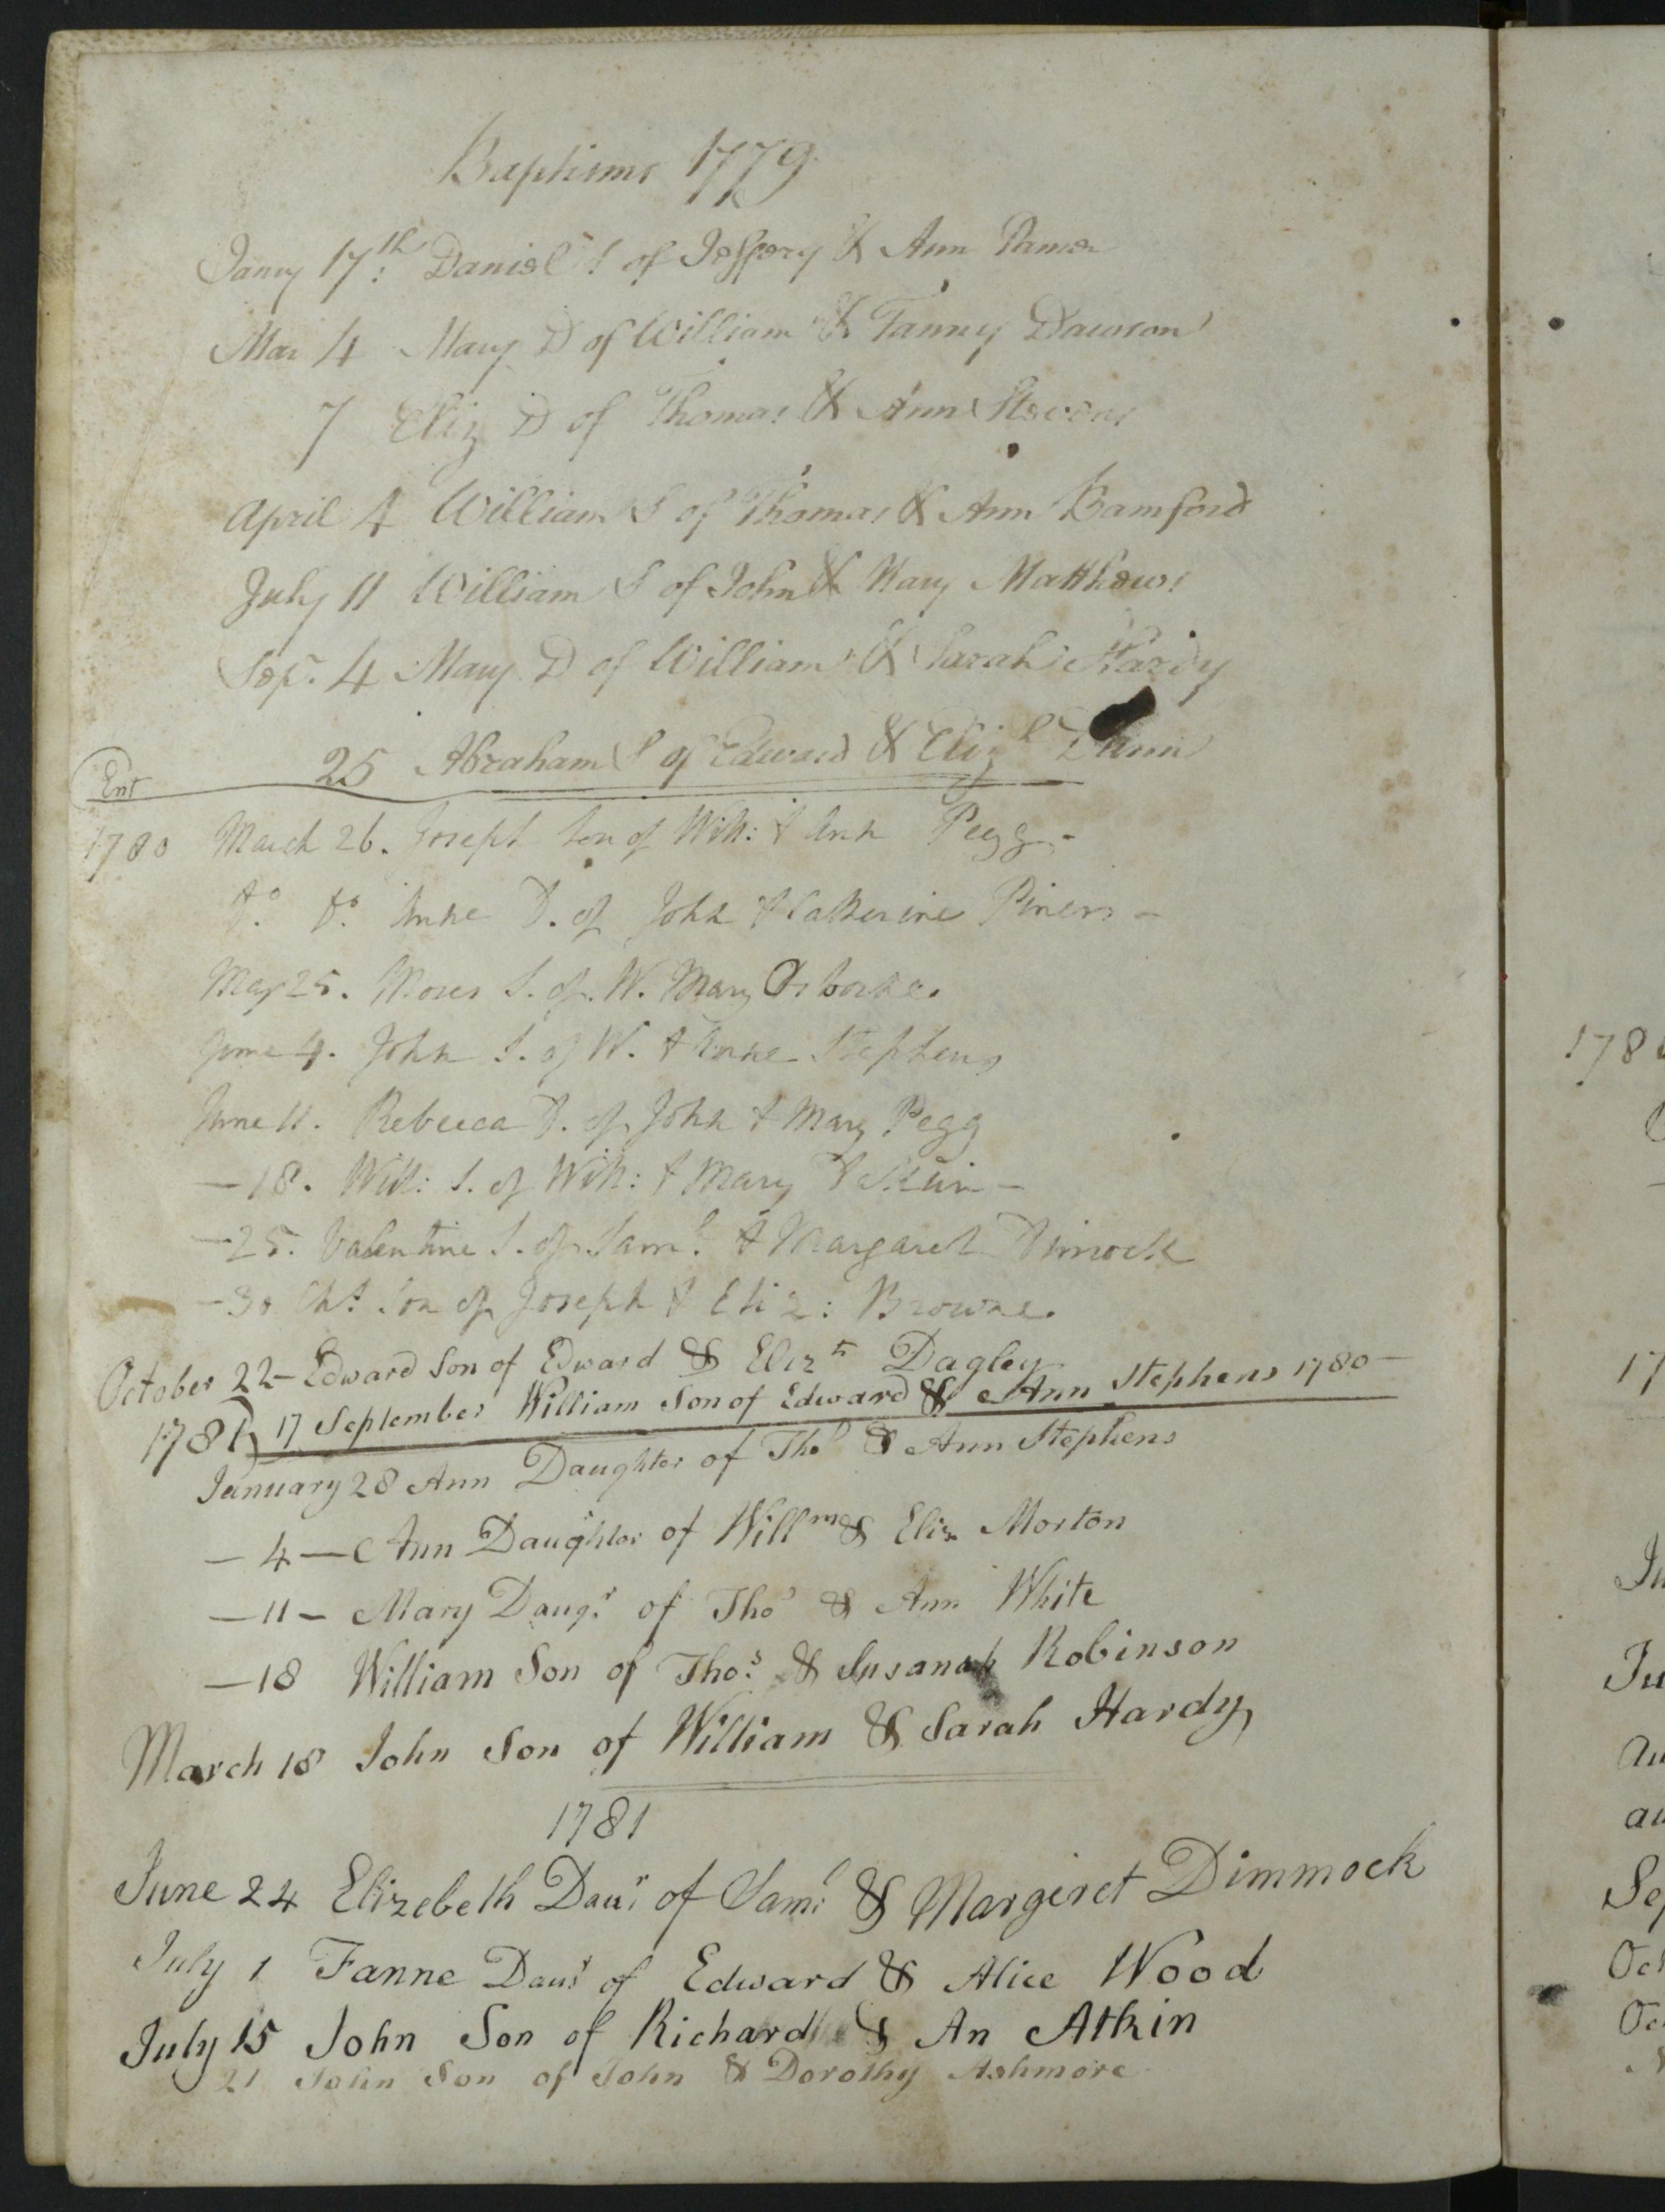 Baptisms 1779
Janry 17th: Daniel S of Jeffery & Ann
Mar 4 Mary D of William & Fanney Dawson
7 Eliz D of Thomas & Ann Stevens
April 4 William S of Thomas & Ann Bamford
July 11 William S of John & Mary Matthews
Sepr. 4 Mary D of William & Sarah Hardy
25 Abraham S of Edward & Eliz Dunn
Ent
1780 March 26. Joseph Son of Will: & Ann Pegg -
Do. Do. Anne D. of John & Catherine
May 25. Moses S. of W. Mary Osborne.
June 4. John S. of W. & Anne Stephens
June 11. Rebecca D. of John & Mary Pegg
-18. Will: S. of Will: & Mary
-25. Valentine S. of Saml. & Margaret Dimock
-30. Son of Joseph & Eliz: Browne.
October 22 - Edward Son of Edward & Elizth Dagley
1781) 17 September William Son of Edward & Ann Stephens 1780 -
January 28 Ann Daughter of Thos & Ann Stephens
- 4 - Ann Daughter of Willm & Eliz Morton
- 11 - Mary Daugr. of Thos & Ann White
- 18 William Son of Thos. & Susanah Robinson
March 18 John Son of William & Sarah Hardy
1781
June 24 Elizebeth Daur of Saml. & Margeret Dimmock
July 1 Fanne Daur of Edward & Alice Wood
July 15 John Son of Richard & An Atkin
21 John Son of John & Dorothy Ashmore
178
17
Ju
Ju
Au
au
Sep
Oct
Oc